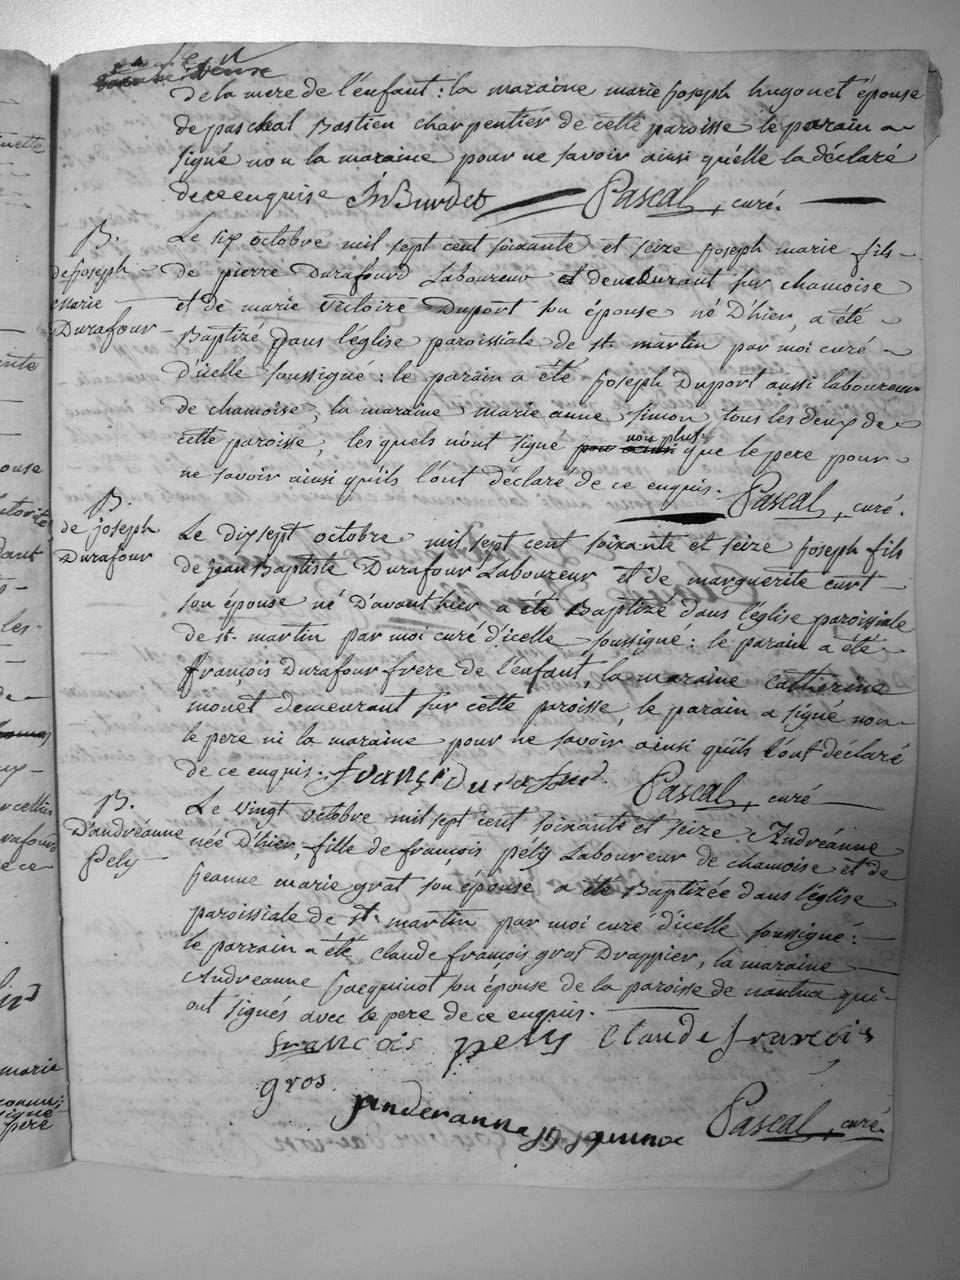 de la mere de l'enfant : la maraine marie joseph hugonet épouse
de paschal Bastien charpentier de cette paroisse le parain a
signé non la maraine pour ne savoir ainsi qu'elle la déclaré
de ce enquise JnBurdet Pascal, curé.
B.
de joseph
marie
Durafour
Le six octobre mil sept cent soixante et seize joseph marie fils
de pierre Durafourd Laboureur et demeurant sur chamoise
et de marie victoire Duport son épouse né D'hier, a été
Baptizé dans l'église paroissiale de st. martin par moi curé
d'icelle soussigné : le parain a été joseph Duport aussi laboureur
de chamoise, la maraine marie anne simon tous les deux de
cette paroisse, les quels n'ont signé non plus que le pere pour
ne savoir ainsi qu'ils l'ont déclaré de ce enquis. Pascal, curé.
B.
de joseph
Durafour
Le dixsept octobre mil sept cent soixante et seize joseph fils
de jean Baptiste Durafour Laboureur et de marguerite curt
son épouse né D'avant hier a été Baptizé dans l'église paroissiale
de st. martin par moi curé d'icelle soussigné : le parain a été
françois Durafour frere de l'enfant, la maraine catherine
monet demeurant sur cette paroisse, le parain a signé non
le pere ni la maraine pour ne savoir ainsi qu'ils l'ont déclaré
de ce enquis. françi Durafour Pascal, curé
B.
D'andréanne
pely
Le vingt octobre mil sept cent soixante et seize Andréanne
née D'hier, fille de françois pely Laboureur de chamoise et de
jeanne marie grat son épouse a été Baptizée dans l'église
paroissiale de st. martin par moi curé d'icelle soussigné :
le parrain a été claude françois gros Drappier, la maraine
Andreanne jacquinot son épouse de la paroisse de nantua qui
ont signés avec le pere de ce enquis.
francois pely claude francois
gros
Pascal, curé.